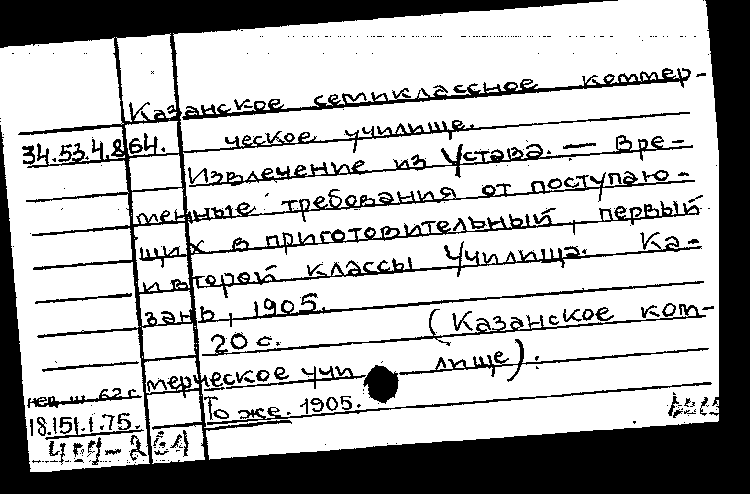 Казанское семиклассное коммер-
34.53.4.864. ческое училище.
Извлечение из Устава. — Вре-
менные требования от поступаю-
щих в приготовительный, первый
и второй классы Училища. Ка-
зань, 1905.
20 с. (Казанское ком-
мерческое учи лище).
То же. 1905.
18.151.1.75.